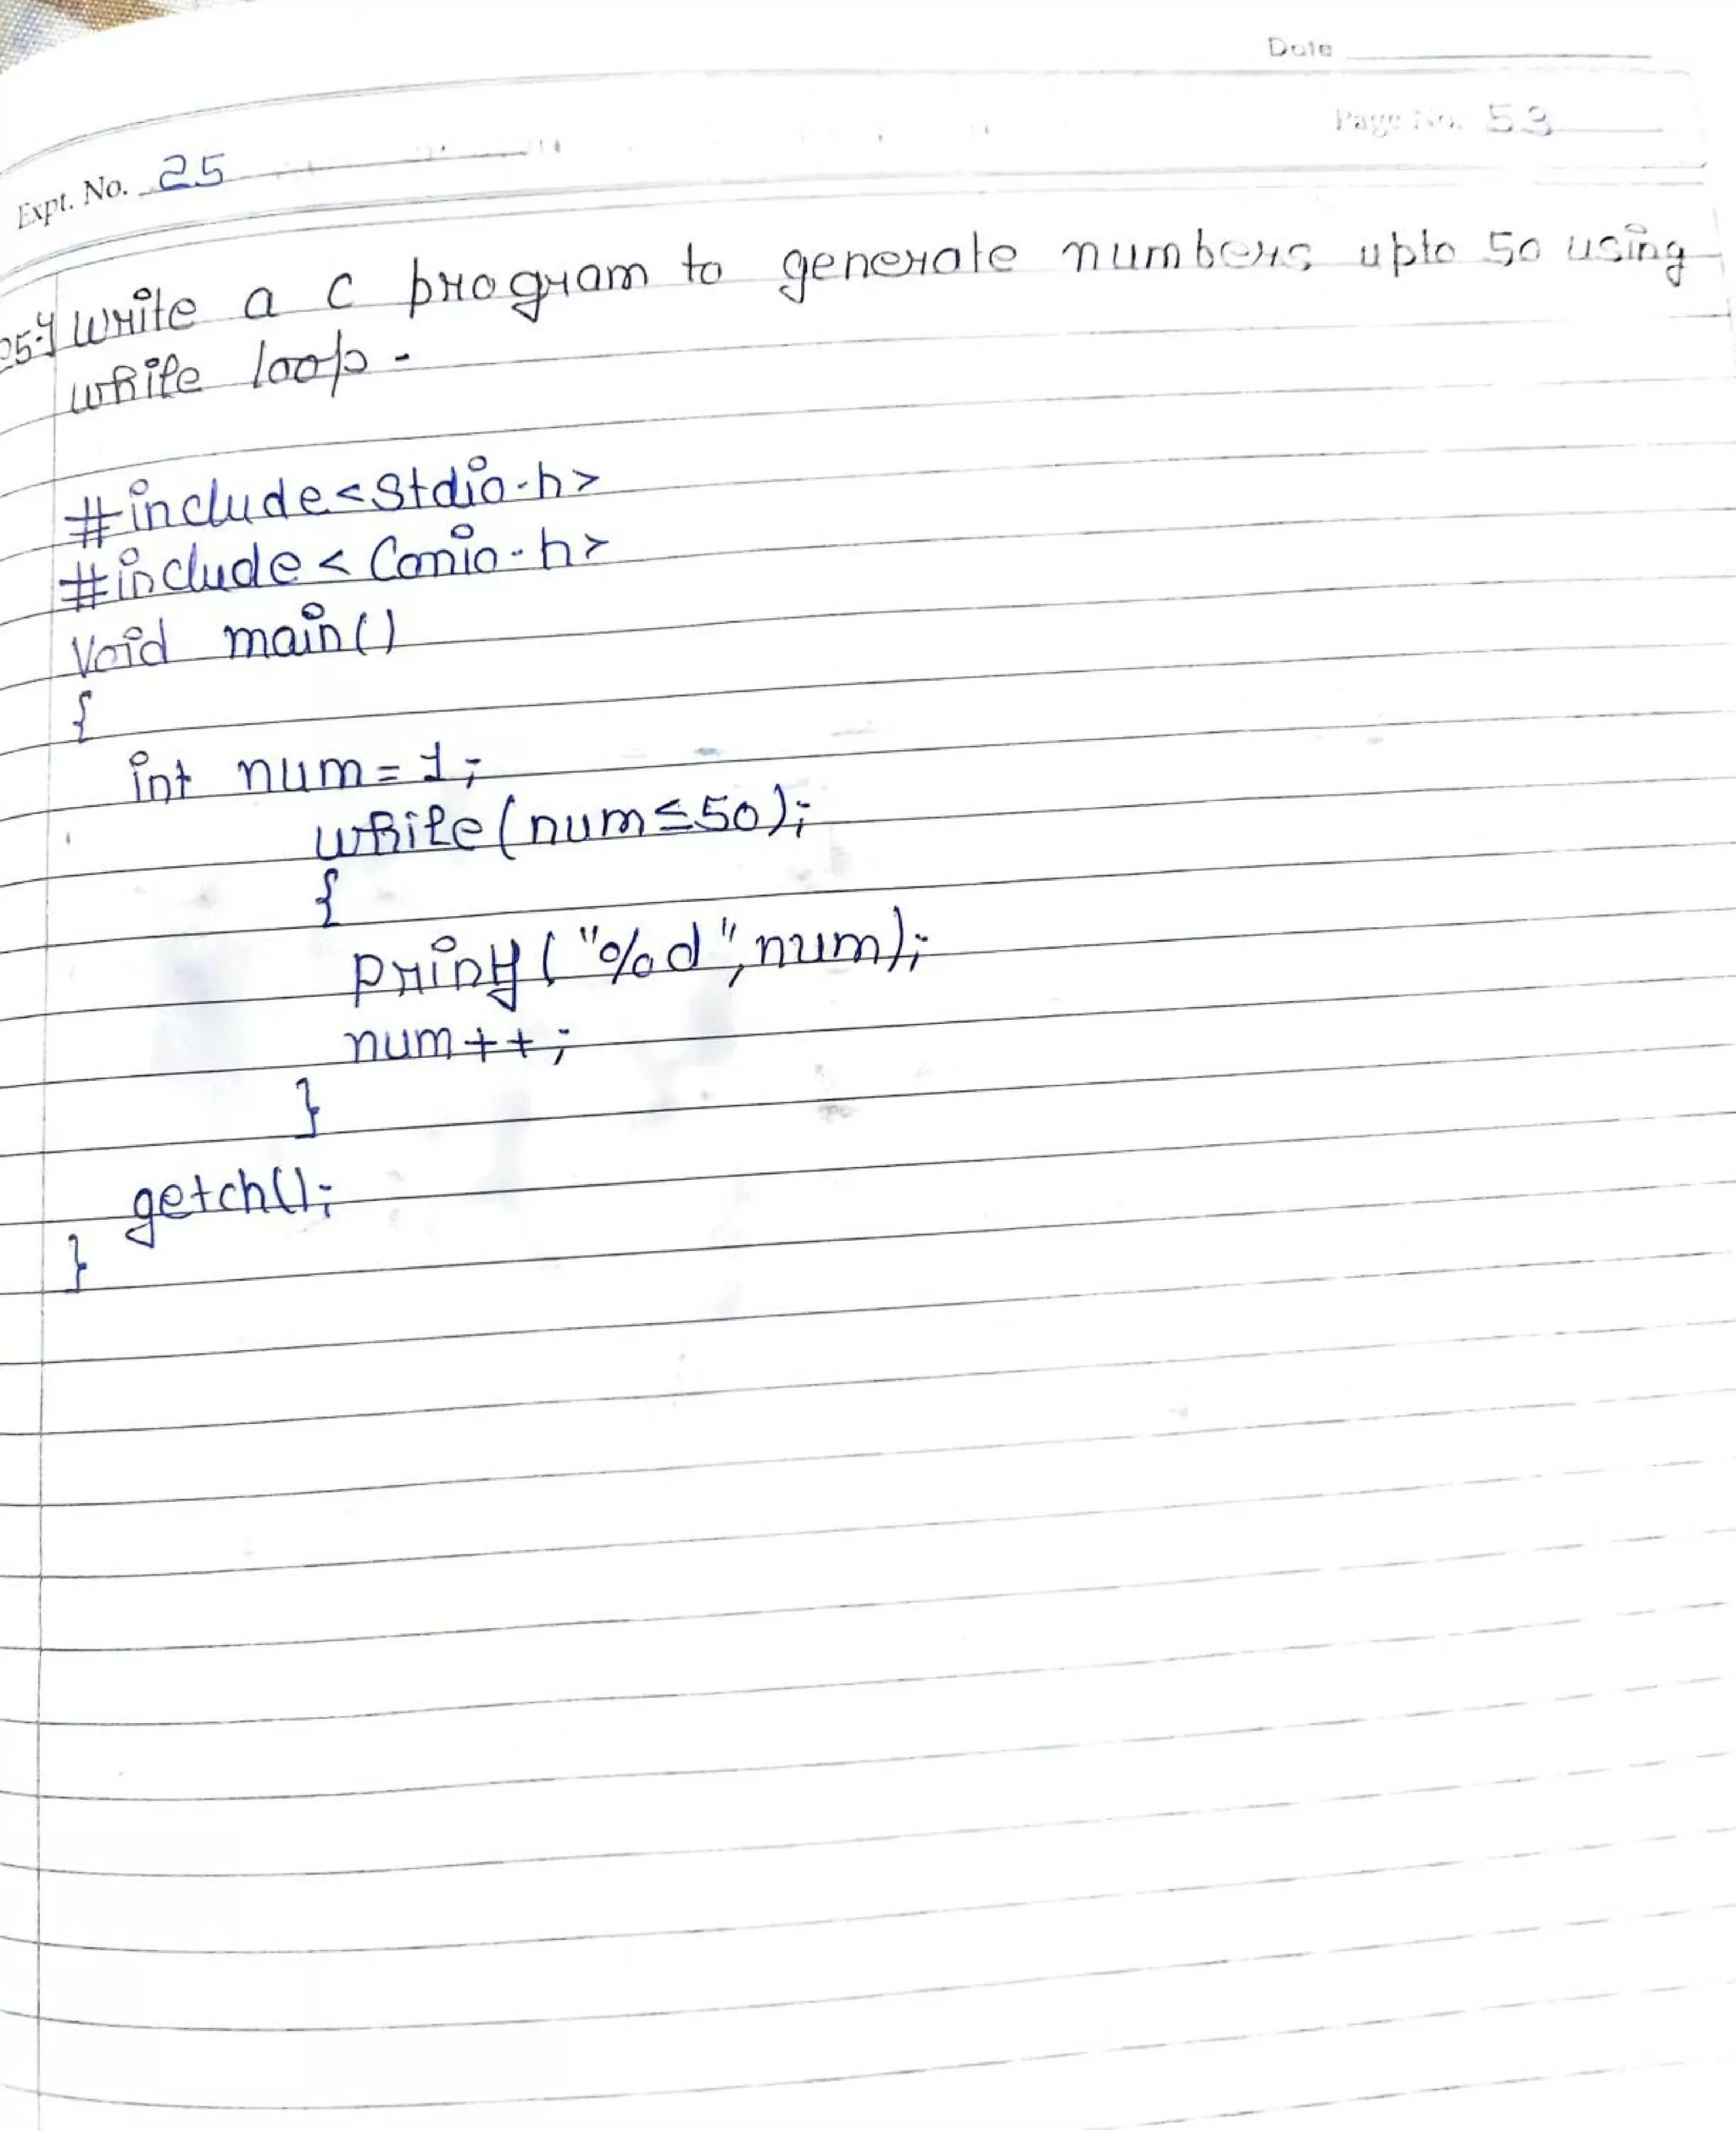 Date
Page No. 53
Expt. No. 25
25.} Write a C program to generate numbers upto 50 using
while loop.
#include<stdio.h>
#include<Conio.h>
Void main()
{
int num=1;
while(num≤50);
{
printf("%d",num);
num++;
}
getch();
}